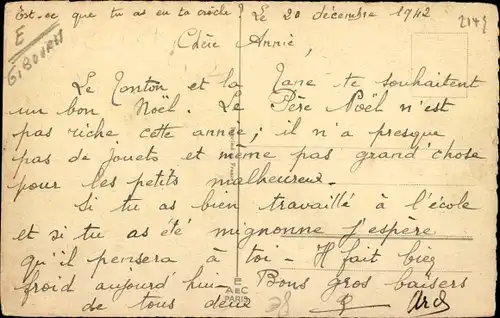 Est-ce que tu as eu ta crèche ? Le 20 décembre 1942
2149
E
GIBOURY
Chère Annie,
Le Tonton et la Tane te souhaitent
un bon Noël. Le Père Noël n'est
pas riche cette année ; il n'a presque
pas de jouets et même pas grand'chose
pour les petits malheureux.
Si tu as bien travaillé à l'école
et si tu as été mignonne j'espère
qu'il pensera à toi - Il fait bien
froid aujourd'hui - Bons gros baisers
de tous deux
E
A C
PARIS